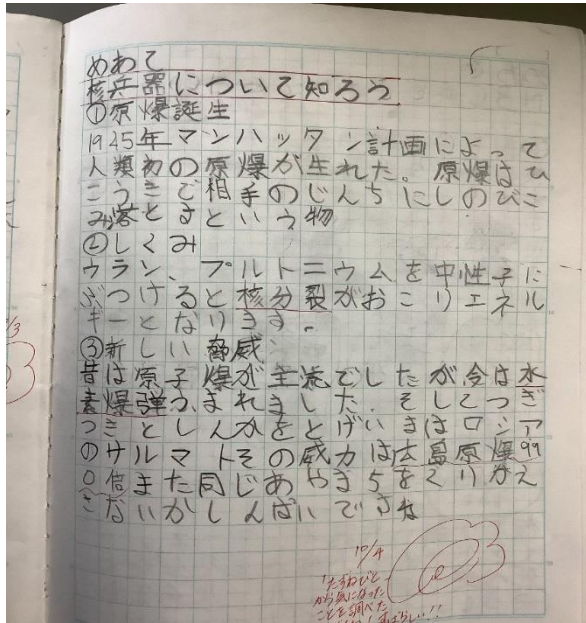 めあて
核兵器について知ろう
①原爆誕生
1945年マンハッタン計画によって
人類初の原爆が生れた。原爆はひ
こうきで相手のじんちにしのびこ
み落とすという物
②しくみ
ウラン、プルトニウムを中性子に
ぶつけると核分裂がおこりエネル
ギーとなります。
③新しい脅威
昔は原子爆が主流でしたが今は水
素爆弾がまれました。そしてつぎ
つぎとしんかをとげいまはロシア
のサルマトその威力は広島原爆99
0倍また同じあやまちをくりかえ
さないかしんぱいですね
10/4
から気になった
ことを調べた
すばらしい!!